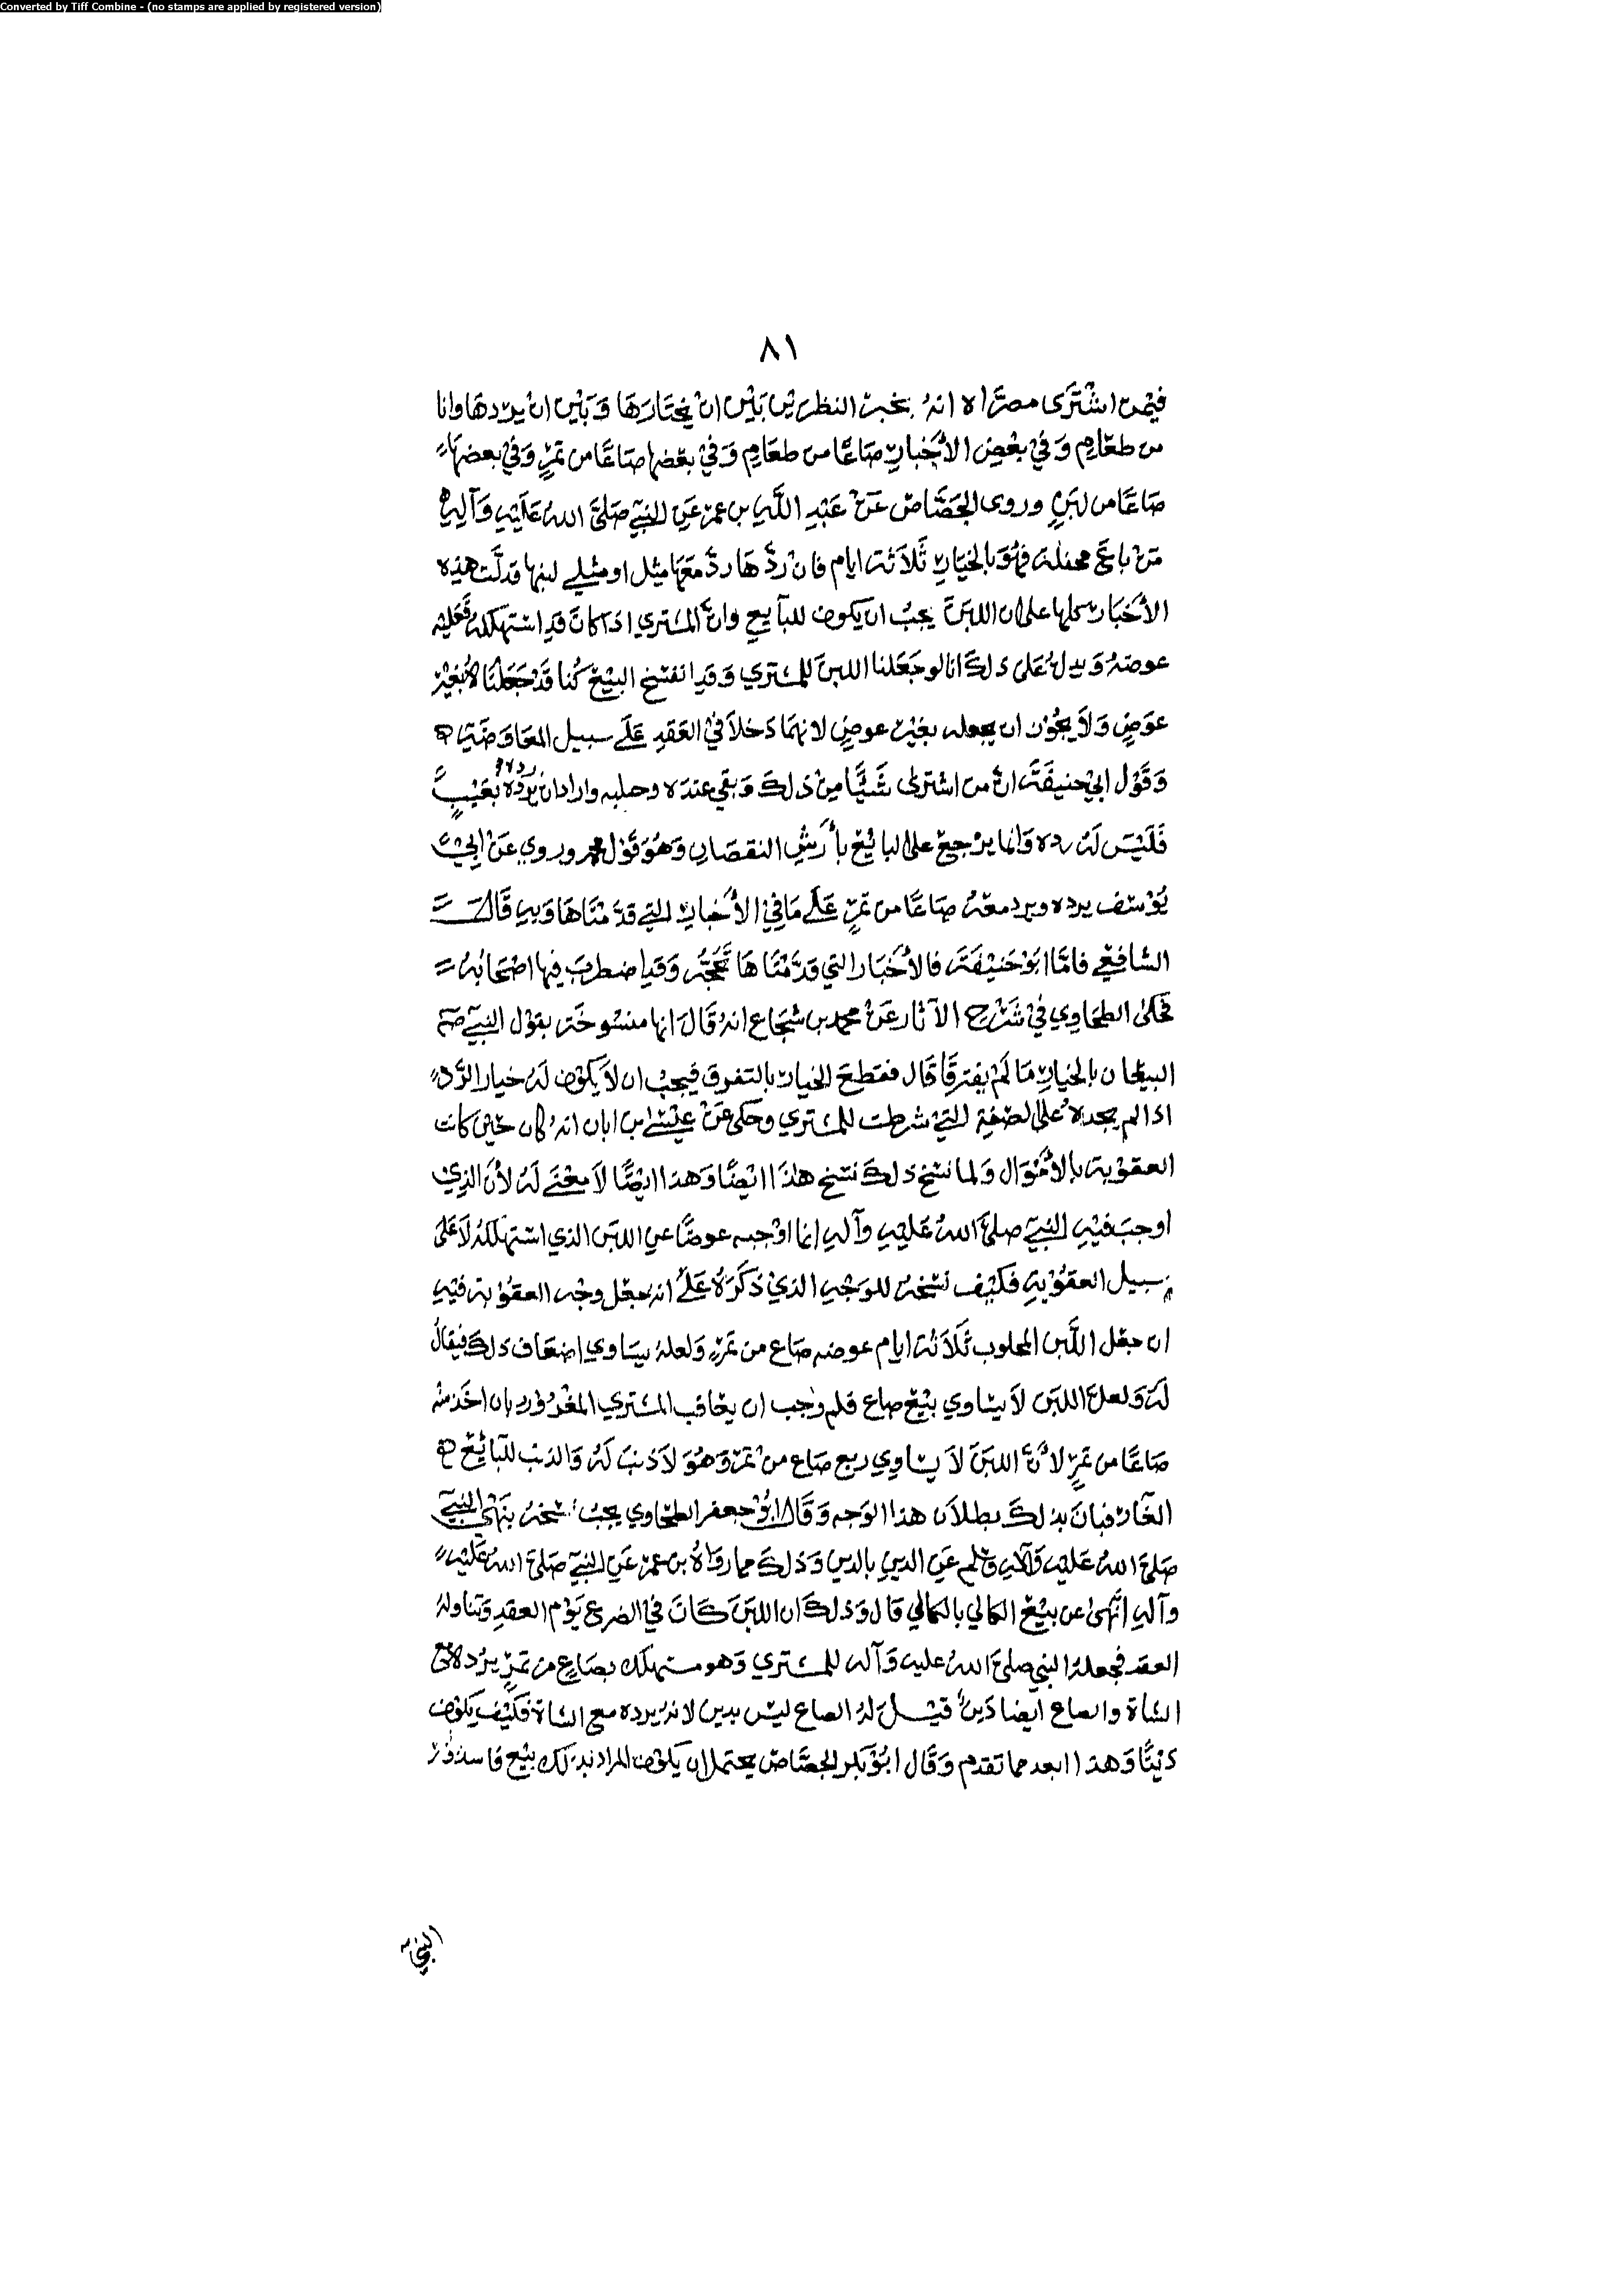 Converted by Tiff Combine - (no stamps are applied by registered version)
٨١
فِيْمَن اشْتَرَى مصرَّاه انهُ بخير النظرين بَيْن انْ يختَارَهَا وَبَيْن انْ يردهَا وانا
من طعَامٍ وَفيْ بعْضِ الأخبارِ صَاعًا من طعَامٍ وَفيْ بعْضها صَاعًا من تمرٍ وَفيْ بعضهَا
صَاعًا من لبَنٍ وروى الجَصَّاصُ عَنْ عَبْدِ اللَّهِ بن عمرَ عَنِ النَّبيِّ صَلىَّ اللهُ عَلَيْهِ وَآلِهِ
مَنْ باعَ محفلة فهُوَ بالخيَارِ ثَلَاثة ايام فان رَدَّهَا ردَّ معَهَا مثل او مثلي لبنها فدلَّت هَذِه
الأخبار كلها على ان اللبنَ يجبُ ان يكون للبَايعِ وانَّ المشتري اذا كانَ قدِ اسْتهلكهُ فَعَليْهِ
عوضهُ وَيدلُّ عَلى ذلكَ انا لو جَعَلنا اللبنَ للمشتري وَقدِ انفسَخ البيْعُ كُنا قَدْ جَعَلْنَاهُ بغَيْر
عوَضٍ وَلاَ يجُوْز ان يجعله بغيْر عوضٍ لانهمَا دَخلاَ فيْ العَقدِ عَلَى سبيل المعَاوَضَةِ
وَقَوْل ابيْ حنيفَةَ انَّ من اشترى شَيْئًا مِنْ ذلكَ وَبقي عندَه وحلبه واراد ان يردّه بعَيْبٍ
رده
فَلَيْسَ لَهُ رده وَانما يرْجعُ على البائعِ بأَرشِ النقصَان وَهُوَ قَوْل محمد وروي عَنْ ابيْ
يُوْسُف يرده ويرد معَهُ صَاعًا من تمرٍ عَلَى مَا فِيْ الأخبَارِ التي قدَّمْنَاهَا وَبهِ قَالَ
الشافعي فامَّا ابَوْحَنيْفَةَ فالأخبَار التي قدَّمْنَاهَا تحجُّهُ وَقدِ اضطربَ فيها اصْحَابُهُ
فحكى الطحَاوِي فيْ شَرْحِ الآثار عَنْ محمد بن شجَاع انهُ قَالَ انها منسُوخَة بقوْل النَّبيِّ صلعم
البيعَان بالخيَارِ مَا لَمْ يفترقَا قَال فقطعَ الخيار بالتفرق فيجبُ ان لاَ يكوْن لَهُ خيار الرَّدِّ
اذا لم يجده على الصفةِ التيْ شرطت للمشتري وحكى عَنْ عيْسى ابن ابان انهُ كان حيْن كانت
العقوْبة بالأمْوَال وَلما نسخ ذلكَ نسخ هذَا ايْضًا وَهذا ايضًا لاَ معْنَى لَهُ لأنَ الذِي
اوجبَ فيْهِ النَّبيُّ صلىَّ اللهُ عَليْهِ وَآلهِ انما اوْجبه عوضًا عنِ اللبَن الذي اسْتهلكهُ لاَ عَلَى
سبيل العقوْبةِ فكيْف نسخهُ للوَجْهِ الذيْ ذَكَرَهُ عَلَى انه جعَل وجْهَ العقوْبة فيْهِ
ان جعَل اللَّبن المحلوب ثَلَاثة ايام عوضه صَاع من تمرٍ وَلعلهُ يسَاوي اضعَاف ذلكَ فيقالُ
لَهُ وَلعلَ اللبَن لاَ يسَاوي بيْع صاع فلم وجب ان يعَاقب المشتري المغْرُوْر بان اخذ منه
صَاعًا من تمرٍ لأنَّ اللبنَ لاَ يسَاوِي ربع صَاع منْ تمر وَهُوَ لاَ ذنبَ لَهُ وَالذنب للبائعْ
الغَار فبانَ بذلكَ بطلاَن هذا الوَجه وَقَال ابُوْ جعفر الطحَاوي يجبُ نسخهُ بنَهْي النَّبيِّ
صَلىَّ اللهُ عَليْهِ وَآلهِ وَسلم عَنِ الدينِ بالدينِ وَذلكَ مما رَوَاهُ بن عمرَ عَنِ النَّبيِّ صَلىَّ اللهُ عَليْهِ
وآلهِ انهُ نهى عن بيْعِ الكالي بالكالي قَال وَذلكَ ان اللبَنَ كَانَ في الضرع يَوْم العقدِ وَتناولهُ
العقد فجعلهُ النبي صلىَّ اللهُ عليه وَآله للمشتري وَهو مستهلك بصَاعٍ من تمرٍ يردهُ مع
الشاة والصاع ايضا دَينٌ قيْل لهُ الصاع ليْس بدين لانهُ يرده مع الشاة فكَيْف يكوْن
دَيْنًا وَهذا ابعد مما تقدم وَقَال ابُوْ بكر الجصَّاصُ يحتمل ان يكوْن المراد بذلك بيْع فاسد